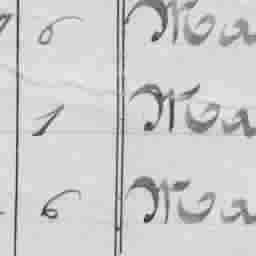 6 Ma
1 Ma
6 Ma